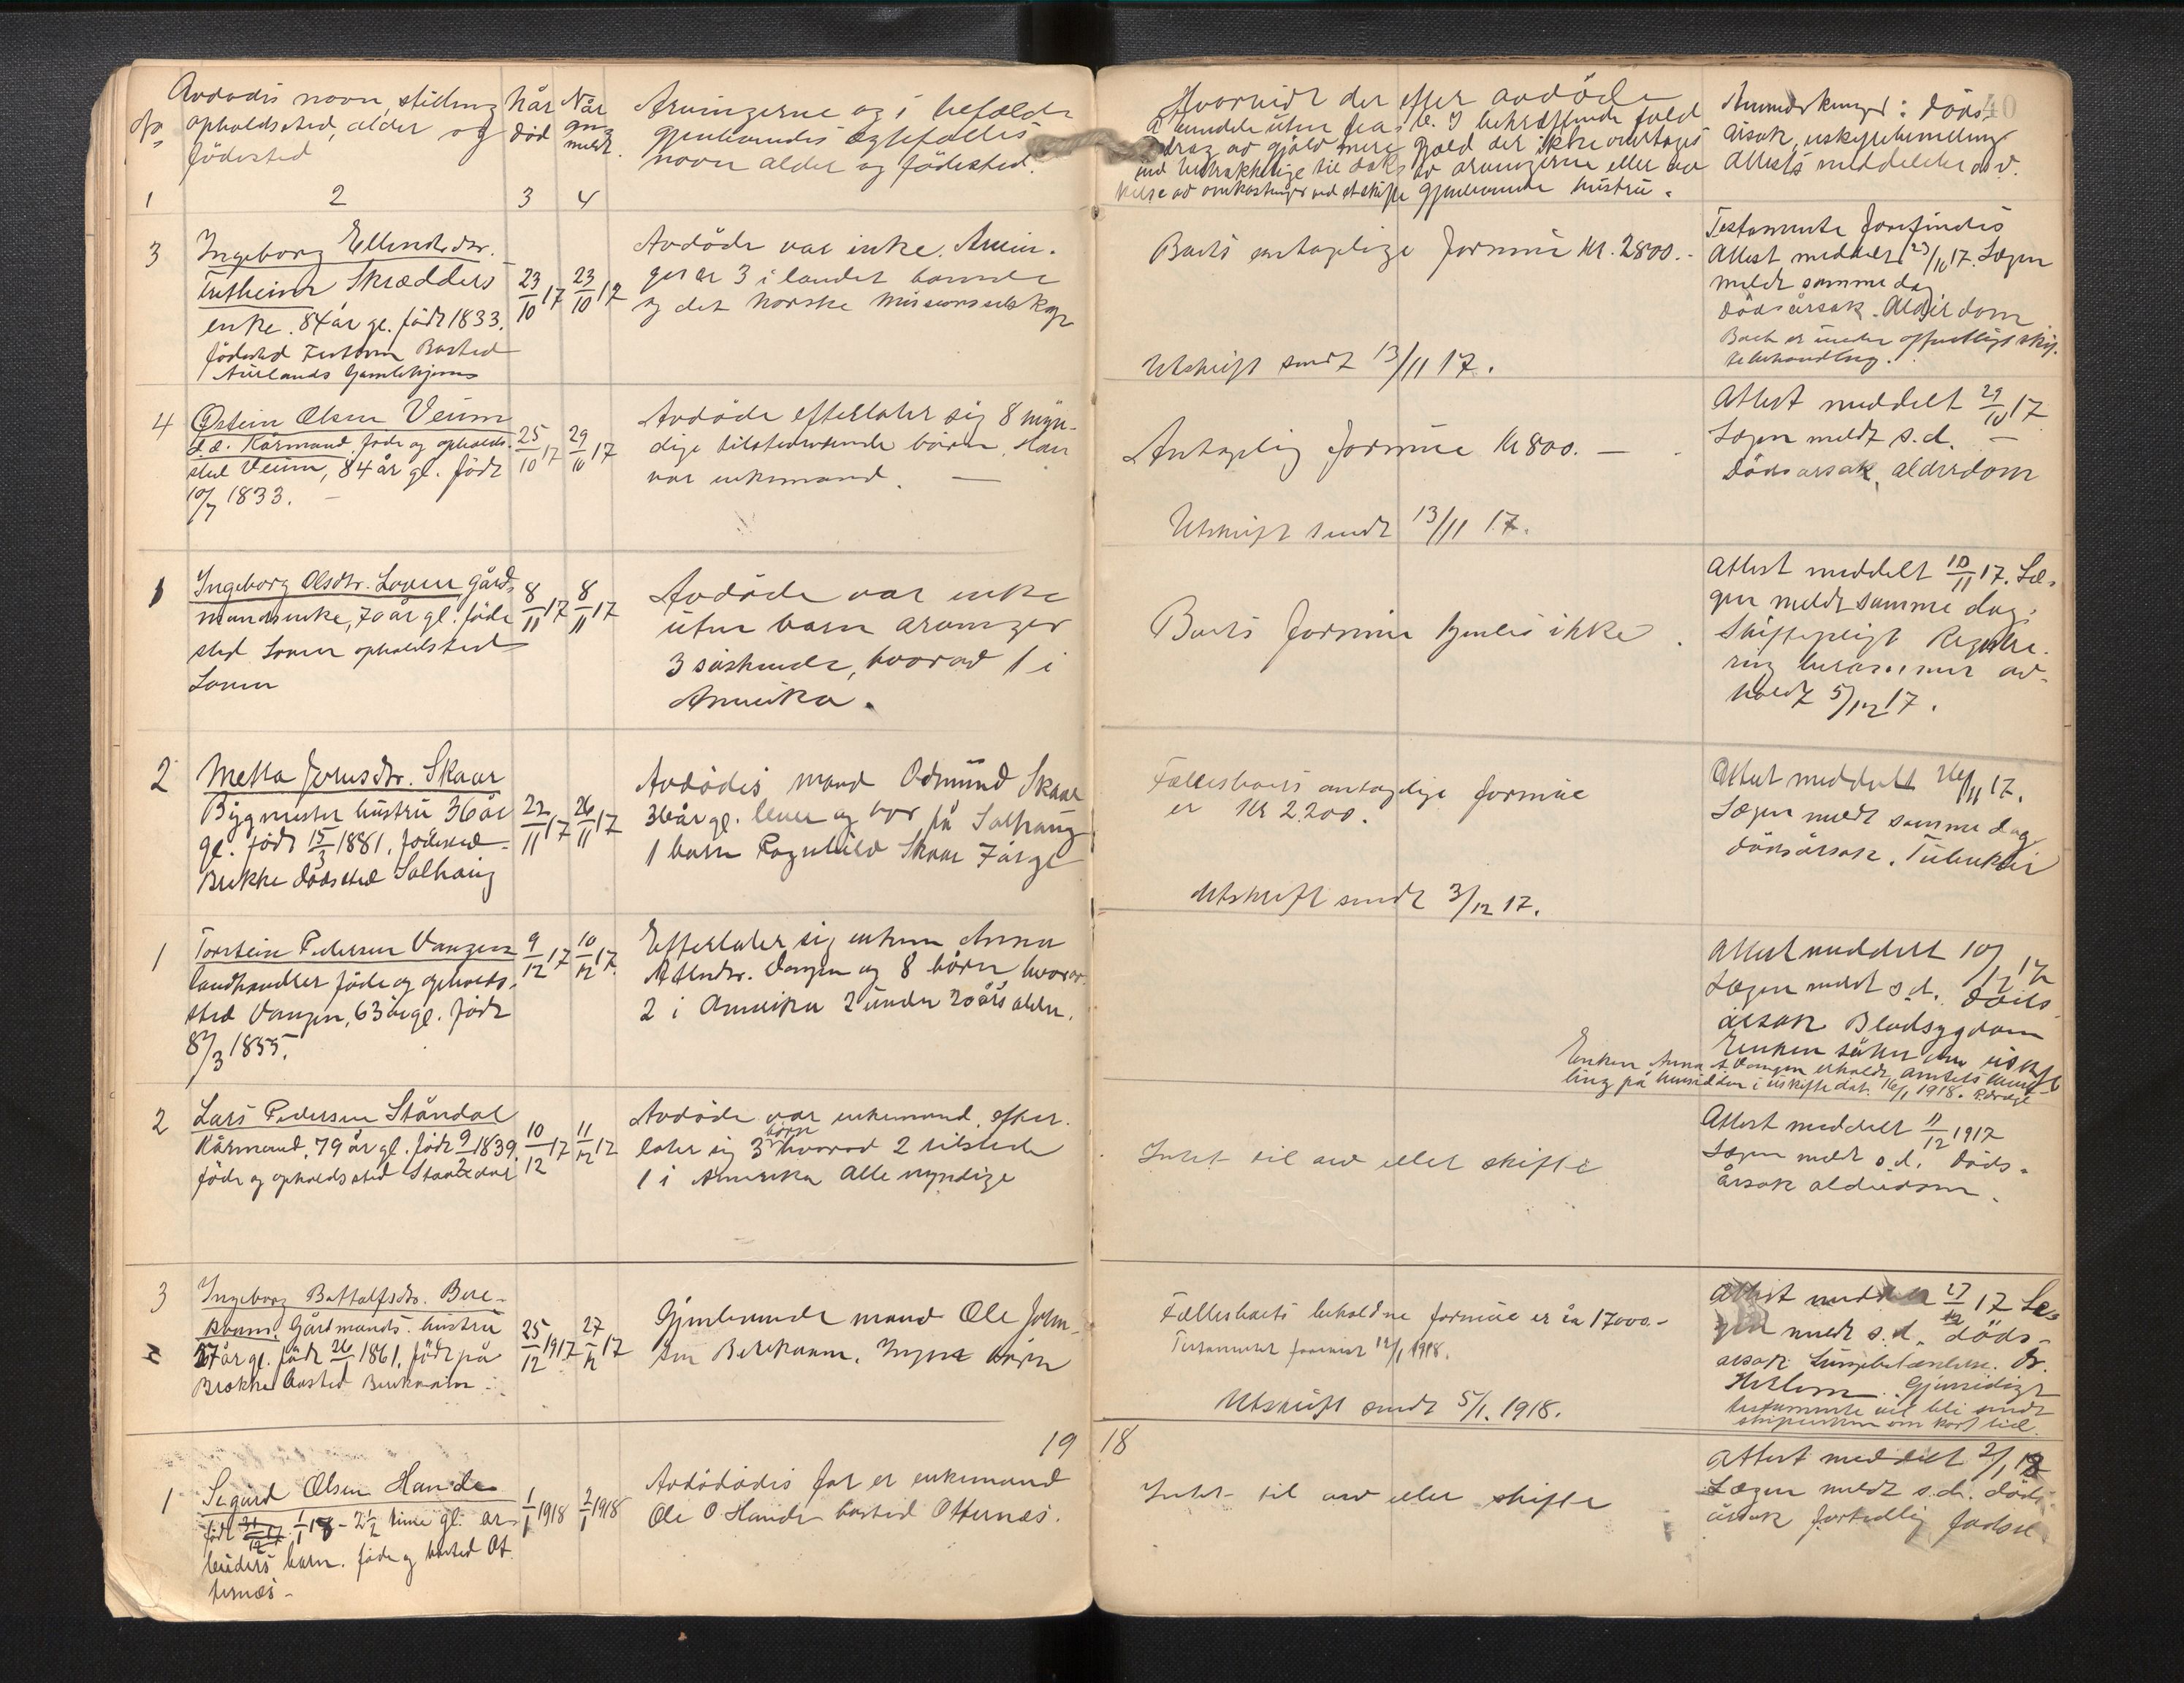 No
Avdødes navn, stilling
opholdssted, alder og
fødested
Når
død
Når
anmeldt.
Arvingerne og i tilfælde
gjenlevendes ektefælles
navn alder og fødested.
Hvorvidt der efter avdøde
gjæld der ikke overtages
av arvingerne eller av
gjenlevende hustru.
Anmerkninger: døds
årsak, uskiftebevilling
attests meddelelse o.s.v.
40
1
2
3
4
3
Ingeborg Ellendsdtr.
Fretheim Skrædders
enke. 84 år gl. født 1833.
fødested Fretheim Bosted
Aurlands Gamlehjem
23/10 17
23/10 17
Avdøde var enke. Arvin-
ger er 3 i landet boende
og det Norske Missionsselskap
Boets antagelige formue Kr. 2800.-
Utskrift sendt 13/11 17.
Testamente forefindes
Attest meddelt 23/10 17. Lægen
meldt samme dag
Dødsårsak. Alderdom
Boet er under offentligt skif-
tebehandling.
4
Østein Olsen Veium
f.d. Kårmand, føde og opholds-
sted Veium, 84 år gl. født
10/7 1833. -
25/10 17
29/10 17
Avdøde efterlater sig 8 myn-
dige tilstedeværende børn. Han
var enkemand. -
Antagelig formue Kr 800. -
Utskrift sendt 13/11 17.
Attest meddelt 29/10 17
Lægen meldt s.d. -
Dødsårsak, alderdom
1
Ingeborg Olsdtr. Loven gård-
mandsenke, 70 år gl. føde
sted Loven opholdssted
Loven
8/11 17
8/11 17
Avdøde var enke
uten barn arvinger
3 søskende, hvorav 1 i
Amerika.
Boets formue kjendes ikke.
Attest meddelt 10/11 17. Læ-
gen meldt samme dag.
Skiftepligt Registre-
ring avholdt 5/12 17.
2
Metta Jensdtr. Skaar
Bygmester hustru 36 år
gl. født 15/3 1881, fødested
Brekke dødssted Salhaug
22/11 17
26/11 17
Avdødes mand Odmund Skaar
36 år gl. lever og bor på Salhaug
1 barn Ragnhild Skaar 7 år gl
Fællesboets antagelige formue
er Kr 2.200.
Utskrift sendt 3/12 17.
Attest meddelt 26/11 17.
Lægen meldt samme dag
dødsårsak. Tuberkler
1
Torstein Pedersen Vangen
landhandler føde og opholds-
sted Vangen, 63 år gl. født
8/3 1855.
9/12 17
10/12 17.
Efterlater sig enken Anna
Vangen og 8 børn hvorav
2 i Amerika 2 under 20 års alder.
Attest meddelt 10/12 17
Lægen meldt s.d. døds
årsak Blodsygdom
Enken søker om uskifte
Enken Anna A Vangen erholdt amtets bevil-
ling på hensidden i uskifte dat. 16/1 1918.
2
Lars Pedersen Ståndal
Kårmand, 79 år gl. født 9/2 1839
føde og opholdssted Staandal
10/12 17
11/12 17
Avdøde var enkemand, efter-
later sig 3 børn hvorav 2 tilstede
1 i Amerika Alle myndige
Intet til arv eller skifte
Attest meddelt 11/12 1917
Lægen meldt s.d. døds-
årsak alderdom.
3
Ingeborg Bottolfsdtr. Bere-
kvam. Gårdmands hustru
57 år gl. født 26/1 1861. født på
Brekke bosted Berekvam
25/12 1917
27/12 17
Gjenlevende mand Ole John-
sen Berekvam. Ingen børn
Fællesboets beholdne formue er ca 17000.-
Testamentet fremvist 12/1 1918.
Utskrift sendt 5/1. 1918.
Attest meddelt 27/12 17 Læ-
gen meldt s.d. døds-
årsak Lungebetændelse. Dr.
Gjensidigt
testamente vil bli sendt
skifteretten om kort tid.
19
18
1
Sigurd Olsen Hande
født 31/12 17 1/1 18 - 2½ time gl. ar-
beiders barn. føde og bosted Ot
ternes -
1/1 1918
2/1 1918
Avdødødes far er enkemand
Ole O Hande bosted Otternes.
Intet til arv eller skifte
Attest meddelt 2/1 18
Lægen meldt s.d. døds
årsak fortidlig fødsel